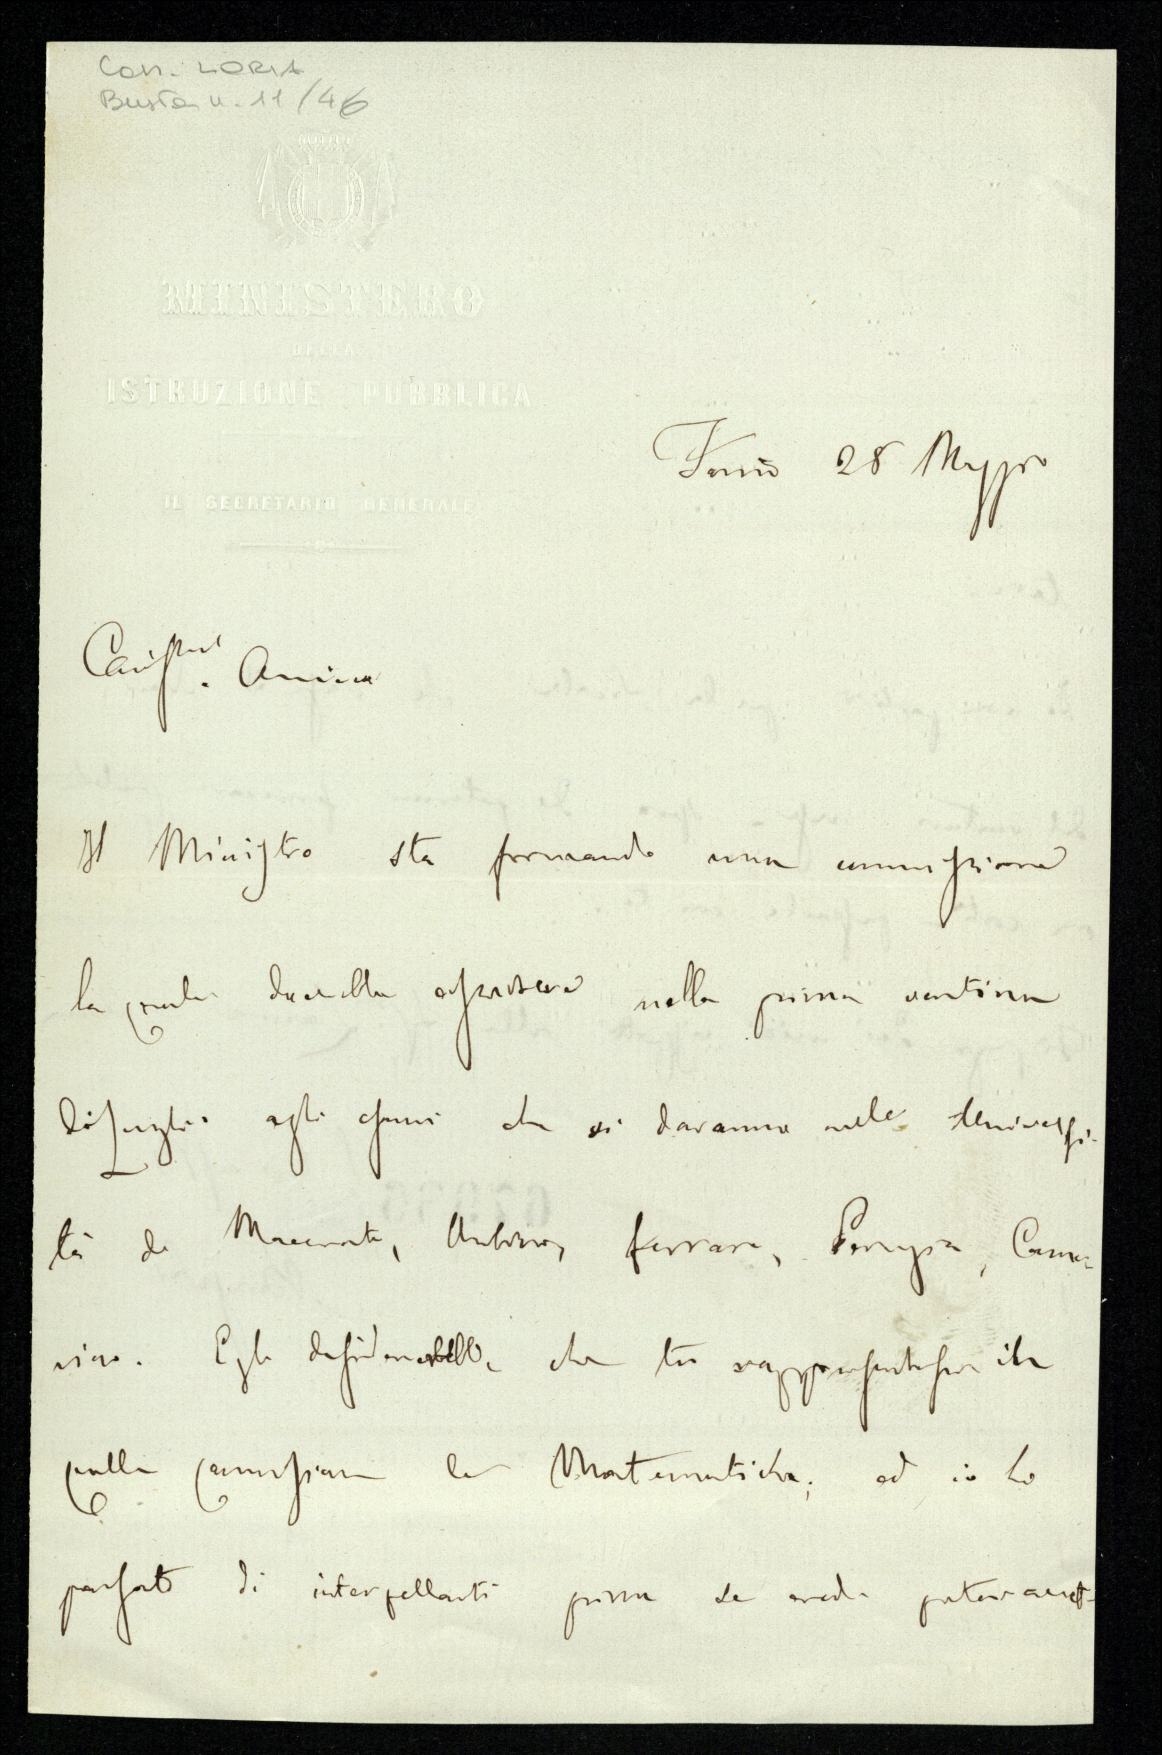 Corr. LORIA
Busta n. 11/46
MINISTERO
DELLA
ISTRUZIONE PUBBLICA
IL SECRETARIO GENERALE
28 Maggio
Amico
Il Ministro sta formando una commissione
la quale dovrebbe assistere nella prima ventina
di Luglio agli esami che si daranno nelle Universi-
tà di Macerata, Urbino, Ferrara, Perugia, Came-
rino. Egli desidererebbe che tu rappresentassi in
quella commissione le Matematiche; ed io ho
pensato di interpellarti prima se credi poter accet-